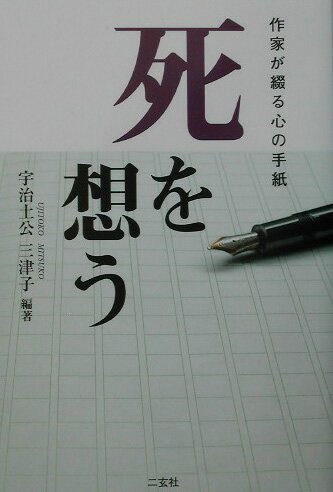 作家が綴る心の手紙
死を想う
宇治土公 三津子 編著
UJITOKO MITSUKO
二玄社